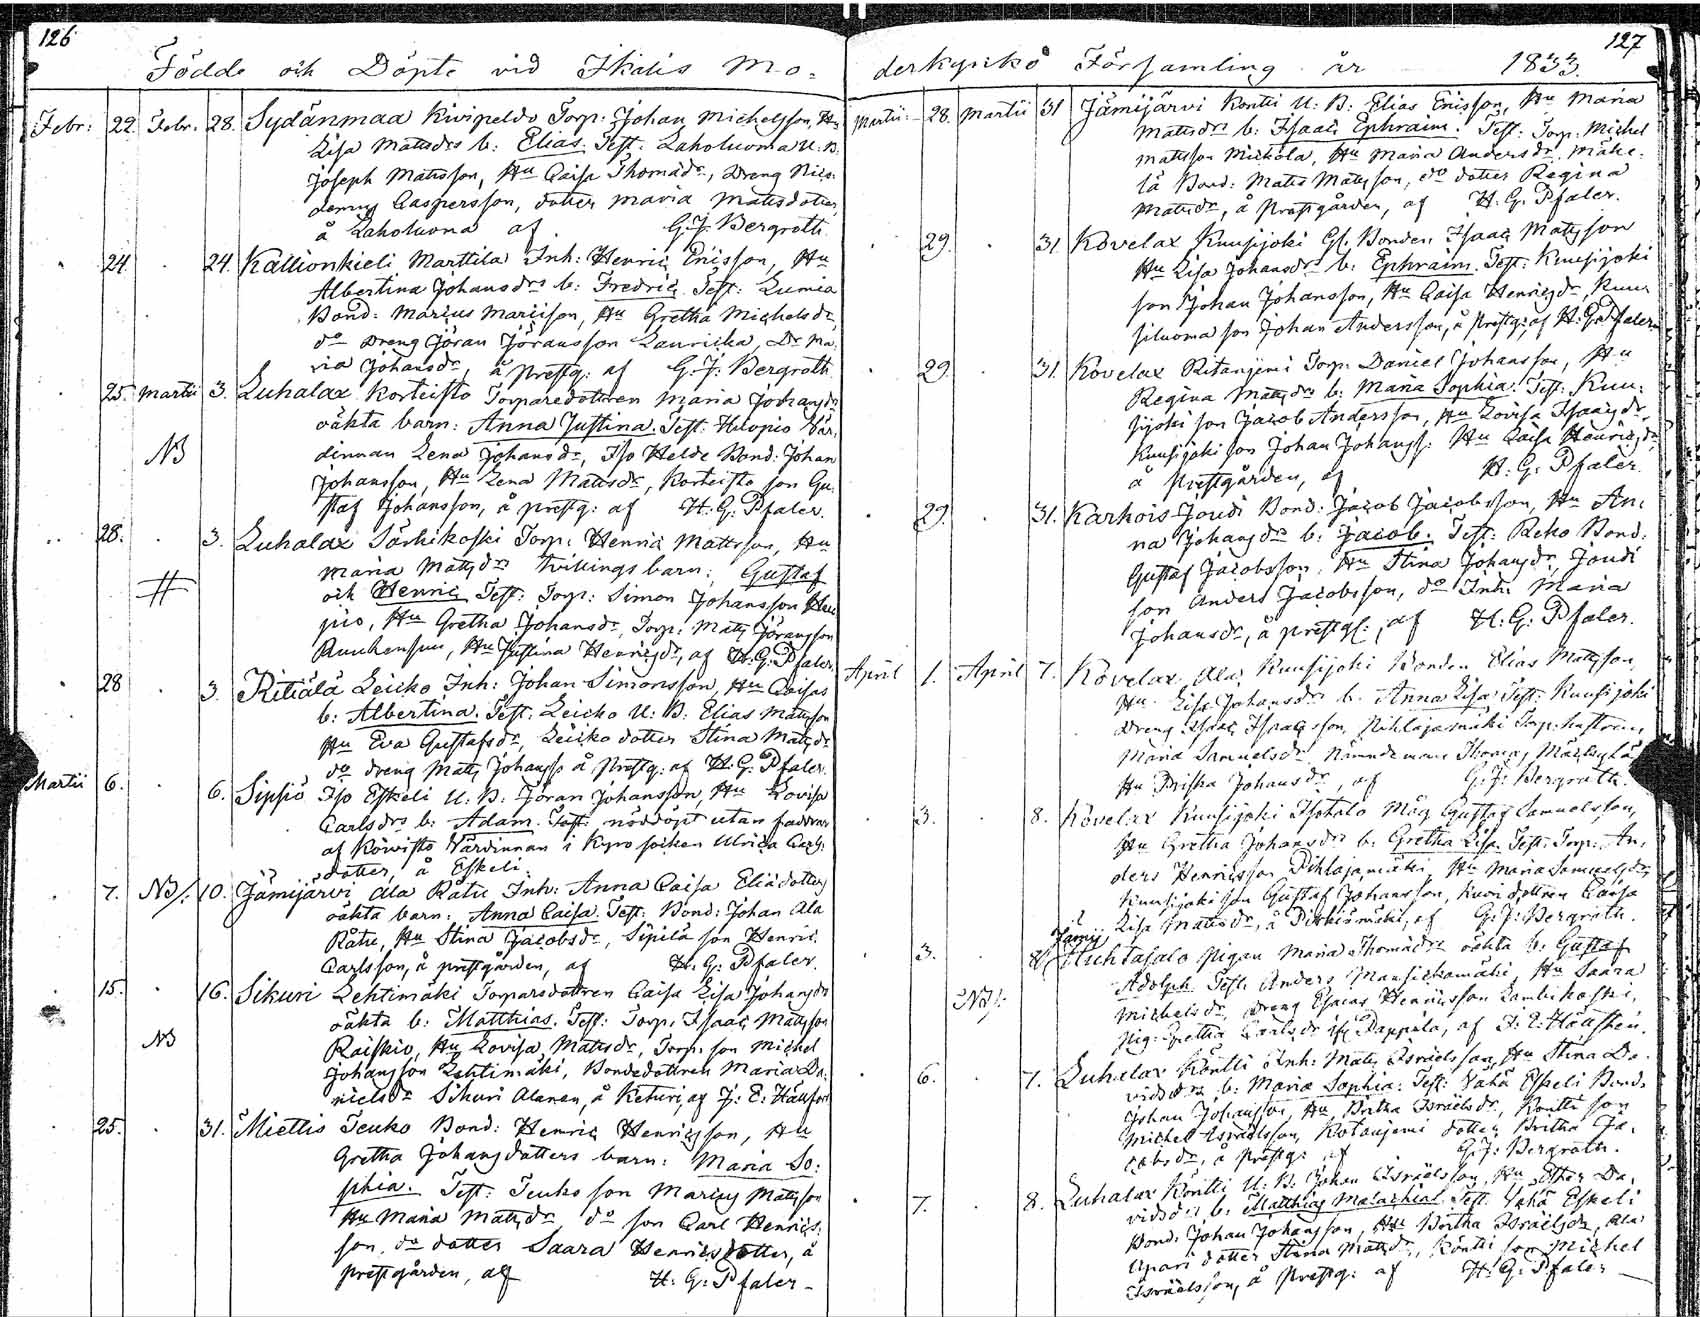 126
Födde och Döpte vid Ikalis Mo=
Febr: 22. Febr. 28. Sydänmaa Kivipeldo Torp: Johan Michelsson, Hu
Lisa Mattsdrs b: Elias. Test: Laholuoma U: B:
Joseph Mattsson, Hu Caisa Thomädr, Dreng Nico
demus Caspersson, dotter Maria Mattsdotter
å Laholuoma af G.J. Bergroth.
24. 24. Kallionkieli Marttila Inh: Henric Ericsson, Hu
Albertina Johansdrs b: Fredric. Test: Lumia
Bond: Marcus Marcisson, Hu Gretha Michelsdr,
do Dreng Jöran Jöransson Lauricka, Dr Ma:
ria Johansdr, å prestg: af G.J. Bergroth.
25. Martii 3. Luhalax Korteisto Torparedottren Maria Johansdrs
NB oäkta barn: Anna Justina. Test: Heopio Vär,
dinnan Lena Johansdr, Iso Helde Bond: Johan
Johansson, Hu Lena Mattsdr, Korteisto son Gu:
staf Johansson, å prestg: af H: G: Pfaler.
28. 3. Luhalax Särkikoski Torp: Henric Mattsson, Hu
# Maria Mattsdrs tvillings barn: Gustaf
och Henric Test: Torp: Simon Johansson
pio, Hu Gretha Johansdr, Torp: Matts Jöransson
Hu Justina Henricsdr, af H: G: Pfaler.
28 3. Ritiälä Leicko Inh: Johan Simonsson, Hu Caisas
b: Albertina. Test: Leicko U: B: Elias Mattsson
Hu Eva Gustafsdr, Leicko dotter Stina Mattsdr
do dreng Matts Johanss å prestg: af H: G: Pfaler.
Martii 6. 6. Sippiö Iso Eskeli U: B: Jöran Johansson, Hu Lovisa
Carlsdrs b: Adam. Test: nöddöpt utan faddrar
af Köwisto Värdinnan i Kyro socken Ulrica Carls
dotter, å Eskeli.
7. NB/: 10. Jämijärvi Ala Rätu Inh: Anna Caisa Eliädotters
oäkta barn: Anna Caisa. Test: Bond: Johan Ala
Rätu, Hu Stina Jacobsdr, Sipilä son Henric
Carlsson, å prestgården, af H: G: Pfaler.
15. 16. Sikuri Lehtimäki Torparedottren Caisa Lisa Johansdrs
NB oäkta b: Matthias. Test: Torp: Isaac Mattsson
Raiskio, Hu Lovisa Mattsdr, Torp: son Michel
Johansson Lehtimäki, Bondedottren Maria Da:
nielsdr Sikuri Alanen, å Keturi, af J: E: Hällfors
25. 31. Miettis Teuko Bond: Henric Henricsson, Hu
Gretha Johansdotters barn: Maria So:
phia. Test: Teuko son Marcus Mattsson
Hu Maria Mattsdr do son Carl Henrics:
son, do dotter Saara Henricsdotter, å
prestgården, af H: G: Pfaler
127
derkyrko Församling år 1833.
Martii 28. Martii 31 Jämijärvi Kontti U: B: Elias Ericsson, Hu Maria
Mattsdrs b: Isaac Ephraim. Test: Torp: Michel
Mattsson Mickola, Hu Maria Andersdr. Mäke:
lä Bond: Matts Mattsson, do dotter Regina
Mattsdr, å prestgården, af H. G. Pfaler.
29. 31. Kovelax Kuusijoki Gl. Bonden Isaac Mattsson
Hu Lisa Johansdrs b: Ephraim. Test: Kuusijoki
son Johan Johansson, Hu Caisa Henricsdr, Kuu
siluoma son Johan Andersson, å prestg: af H: G. Pfaler
29. 31. Kovelax Ritaniemi Torp: Daniel Johansson, Hu
Regina Mattsdrs b: Maria Sophia. Test: Kuu:
sijoki son Jacob Andersson, Hu Lovisa Isaacsdr,
Kuusijoki son Johan Johanss: Hu Caisa Henricsdr,
å prestgården, af H: G. Pfaler.
29. 31. Karhois Joudi Bond: Jacob Jacobsson, Hu An:
na Johansdrs b: Jacob. Test: Reko Bond:
Gustaf Jacobsson, Hu Stina Johansdr, Joudi
son Anders Jacobsson, do Inh: Maria
Johansdr, å prestgl:, af H: G: Pfaler.
April 1. April 7. Kovelax Ala Kuusijoki Bonden Elias Mattsson,
Hu Lisa Johansdrs b: Anna Lisa Test: Kuusijoki
Dreng Isaac Isaacsson, Pihlajamäki Torp: hustrun
Maria Samuelsdr Nämndeman Thomas
Hu Priska Johansdr, af G: J: Bergroth.
3. 8. Kovelax Kuusijoki Isotalo Måg Gustaf Samuelsson,
Hu Gretha Johansdrs b: Gretha Lisa. Test: Torp: An,
ders Henricsson Pihlajamäki, Hu Maria Samuelsdr,
Kuusijoki son Gustaf Johansson, dottren Caisa
Lisa Mattsdr, å af G: J: Bergroth.
Jämij
3. 8. Huhtasalo Pigan Maria Thomädrs oäkta b: Gustaf
NB/: Adolph Test: Anders Mansickamäki, Hu Saara
Michelsdr, Dreng Esaias Henricsson Lambikoski,
Pig: Gretha Carlsdr Pappila, af
6. 7. Luhalax Kontti Inh: Matts Israelsson, Hu Stina Da:
vidsdrs b: Maria Sophia: Test: Vähä Eskeli Bond:
Johan Johansson, Hu Britha Israelsdr, Kontti son
Michel Israelsson, Kotaniemi dotter Britha Ja:
cobsdr, å prestg: af G: J: Bergroth.
7. 8. Luhalax Kontti U: B: Johan Israelsson, Hu Esther Da,
vidsdrs b: Matthias Malachias. Test: Vähä Eskeli
Bond: Johan Johansson, Hu Britha Israelsdr, Ala
Apari dotter Stina Mattsdr, Kontti son Michel
Israelsson, å prestg: af H: G: Pfaler